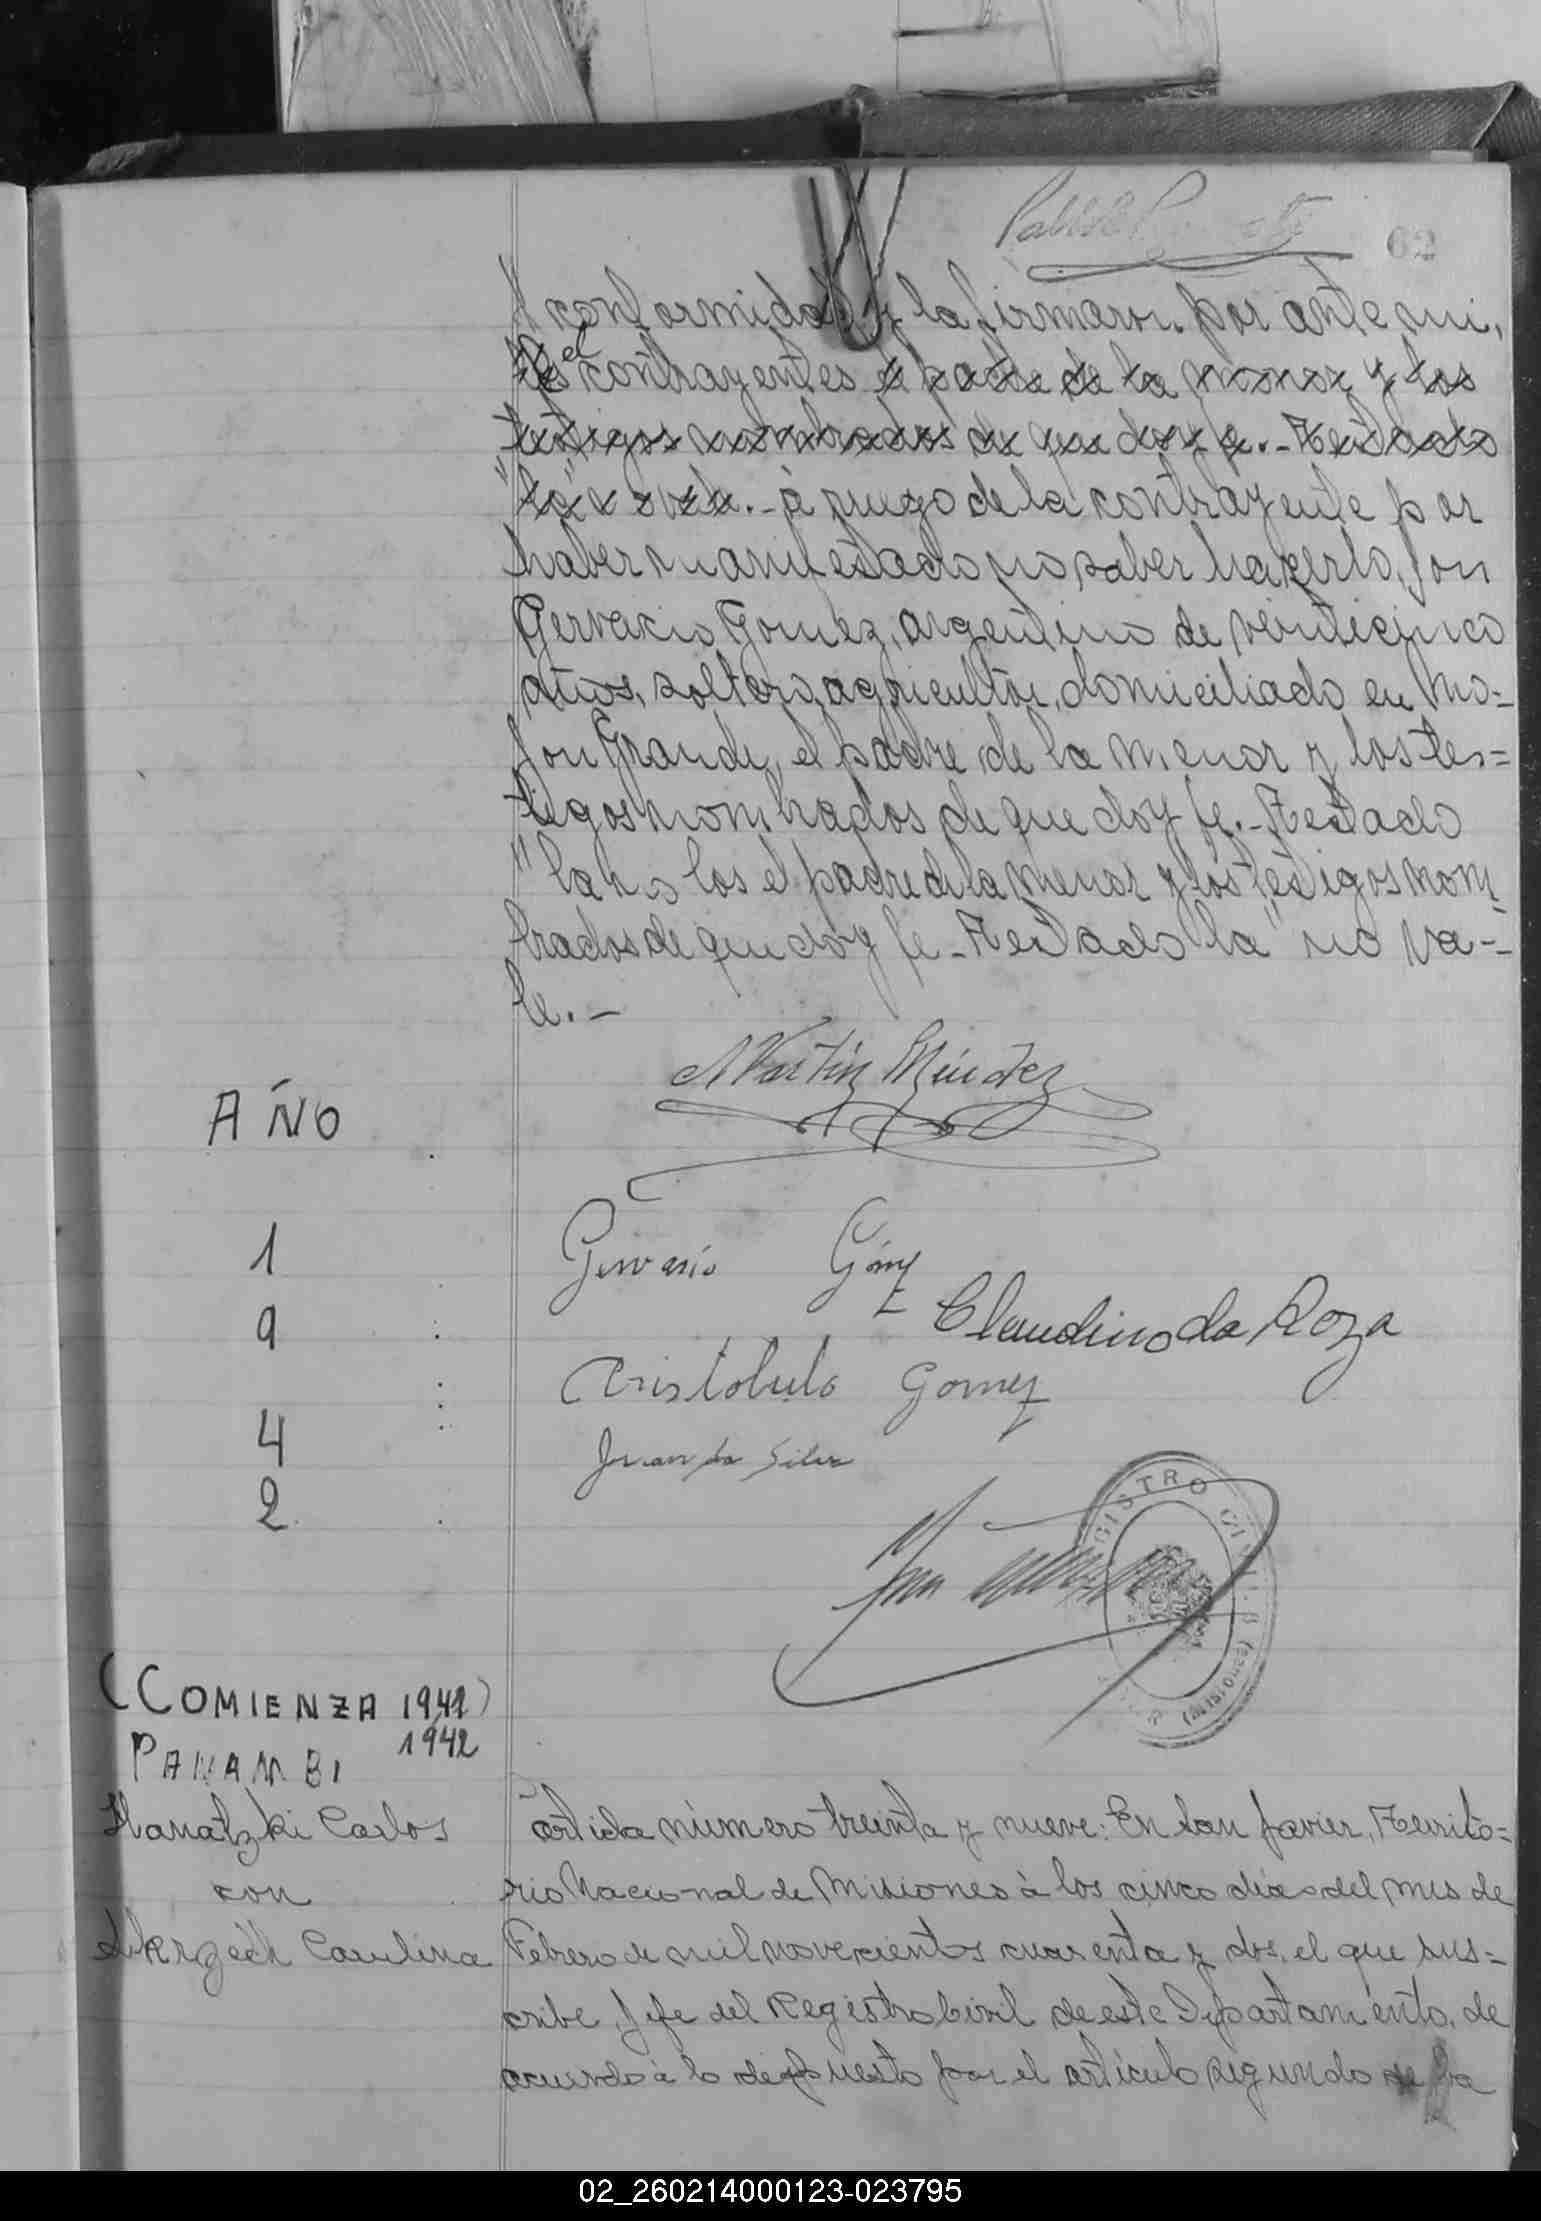 62
conformidad y la firmaron por ante mi,
el contrayentes el padre de la menor y los
testigos nombrados de que doy fe.- Testado
"la" no vale.- à ruego de la contrayente por
haber manifestado no saber hacerlo, Don
Gervacio Gomez, argentino de veinticinco
años, soltero, agricultor, domiciliado en Mo-
jon Grande, el padre de la menor y los tes=
tigos nombrados de que doy fe.- Testado
"la los el padre de la menor y los testigos nom
brados de que doy fe - Testado la" no va=
le.-
Martin Méndez
AÑO
1
9
4
2
Gervasio Gómez
Claudino da Roza
Aristobulo Gomez
Juan da Silva
REGISTRO CIVIL
(MISIONES)
(COMIENZA 1941)
1942
PANAMBI
Carlos
con
Carolina
Partida número treinta y nueve: En San Javier, Territo=
rio Nacional de Misiones à los cinco dias del mes de
Febrero de mil novecientos cuarenta y dos, el que sus=
cribe, Jefe del Registro Civil de este Departamento, de
acuerdo à lo dispuesto por el articulo segundo de la
02_260214000123-023795